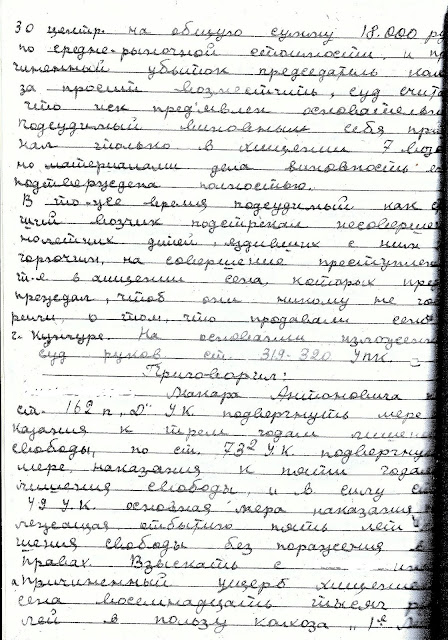 30 центр. на общую сумму 18.000 ру
по средне-рыночной стоимости, и пр
чиненный убыток председатель кол
за просит возместить, суд счита
что иск предъявлен основательн
подсудимый виновным себя приз
нал только в хищении 7 воз
но материалами дела виновность ег
подтверждена полностью.
В то-же время подсудимый как с
ший возчик подстрекал несовершен
нолетних детей, ездивших с ним
горючим, на совершение преступлени
т.е в хищении сена, которых пре
преждал, чтоб они никому не го
рили о том, что продавали сено
г. Кунгуре. На основании изложенно
суд руков. ст. 319-320 УПК.
Приговорил:
Макара Антоновича п
ст. 162 п „Д" УК подвергнуть мере
казания к трем годам лишени
свободы, по ст. 73² УК. подвергну
мере, наказания к пяти годам
лишения свободы, и в силу ст
49 У.К. основная мера наказания
лежащая отбытию пять лет
шения свободы без поражения в
правах. Взыскать с
причиненный ущерб хищение
сена восемнадцать тысяч ру
лей в пользу колхоза „1е М